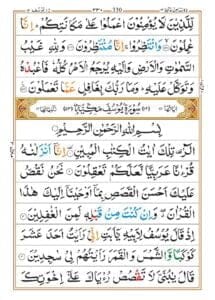 لِّلَّذِيْنَ لَا يُؤْمِنُوْنَ اعْمَلُوْا عَلٰى مَكَانَتِكُمْ ؕ اِنَّا
عٰمِلُوْنَ ۙ وَانْتَظِرُوْا ۚ اِنَّا مُنْتَظِرُوْنَ وَلِلّٰهِ غَيْبُ
السَّمٰوٰتِ وَالْاَرْضِ وَاِلَيْهِ يُرْجَعُ الْاَمْرُ كُلُّهٗ فَاعْبُدْهُ
وَتَوَكَّلْ عَلَيْهِ ؕ وَمَا رَبُّكَ بِغَافِلٍ عَمَّا تَعْمَلُوْنَ
سُوْرَةُ يُوْسُفَ مَكِّيَّةٌ
بِسْمِ اللّٰهِ الرَّحْمٰنِ الرَّحِيْمِ
الٓرٰ ۫ تِلْكَ اٰيٰتُ الْكِتٰبِ الْمُبِيْنِ اِنَّاۤ اَنْزَلْنٰهُ
قُرْءٰنًا عَرَبِيًّا لَّعَلَّكُمْ تَعْقِلُوْنَ نَحْنُ نَقُصُّ
عَلَيْكَ اَحْسَنَ الْقَصَصِ بِمَاۤ اَوْحَيْنَاۤ اِلَيْكَ هٰذَا
الْقُرْاٰنَ ۖ وَاِنْ كُنْتَ مِنْ قَبْلِهٖ لَمِنَ الْغٰفِلِيْنَ
اِذْ قَالَ يُوْسُفُ لِاَبِيْهِ يٰۤاَبَتِ اِنِّيْ رَاَيْتُ اَحَدَ عَشَرَ
كَوْكَبًا وَّالشَّمْسَ وَالْقَمَرَ رَاَيْتُهُمْ لِيْ سٰجِدِيْنَ
قَالَ يٰبُنَيَّ لَا تَقْصُصْ رُءْيَاكَ عَلٰۤى اِخْوَتِكَ